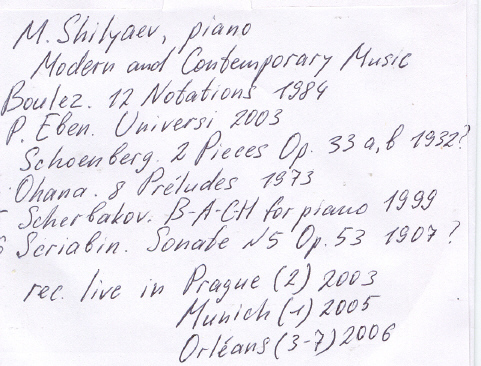 M. Shilyaev, piano
Modern and Contemporary Music
Boulez. 12 Notations 1984
P. Eben. Universi 2003
Schoenberg. 2 Pieces Op. 33 a, b 1932?
Ohana. 8 Préludes 1973
5 Scherbakov. B-A-CH for piano 1999
6 Scriabin. Sonate N5 Op. 53 1907?
rec. live in Prague (2) 2003
Munich (1) 2005
Orléans (3-7) 2006